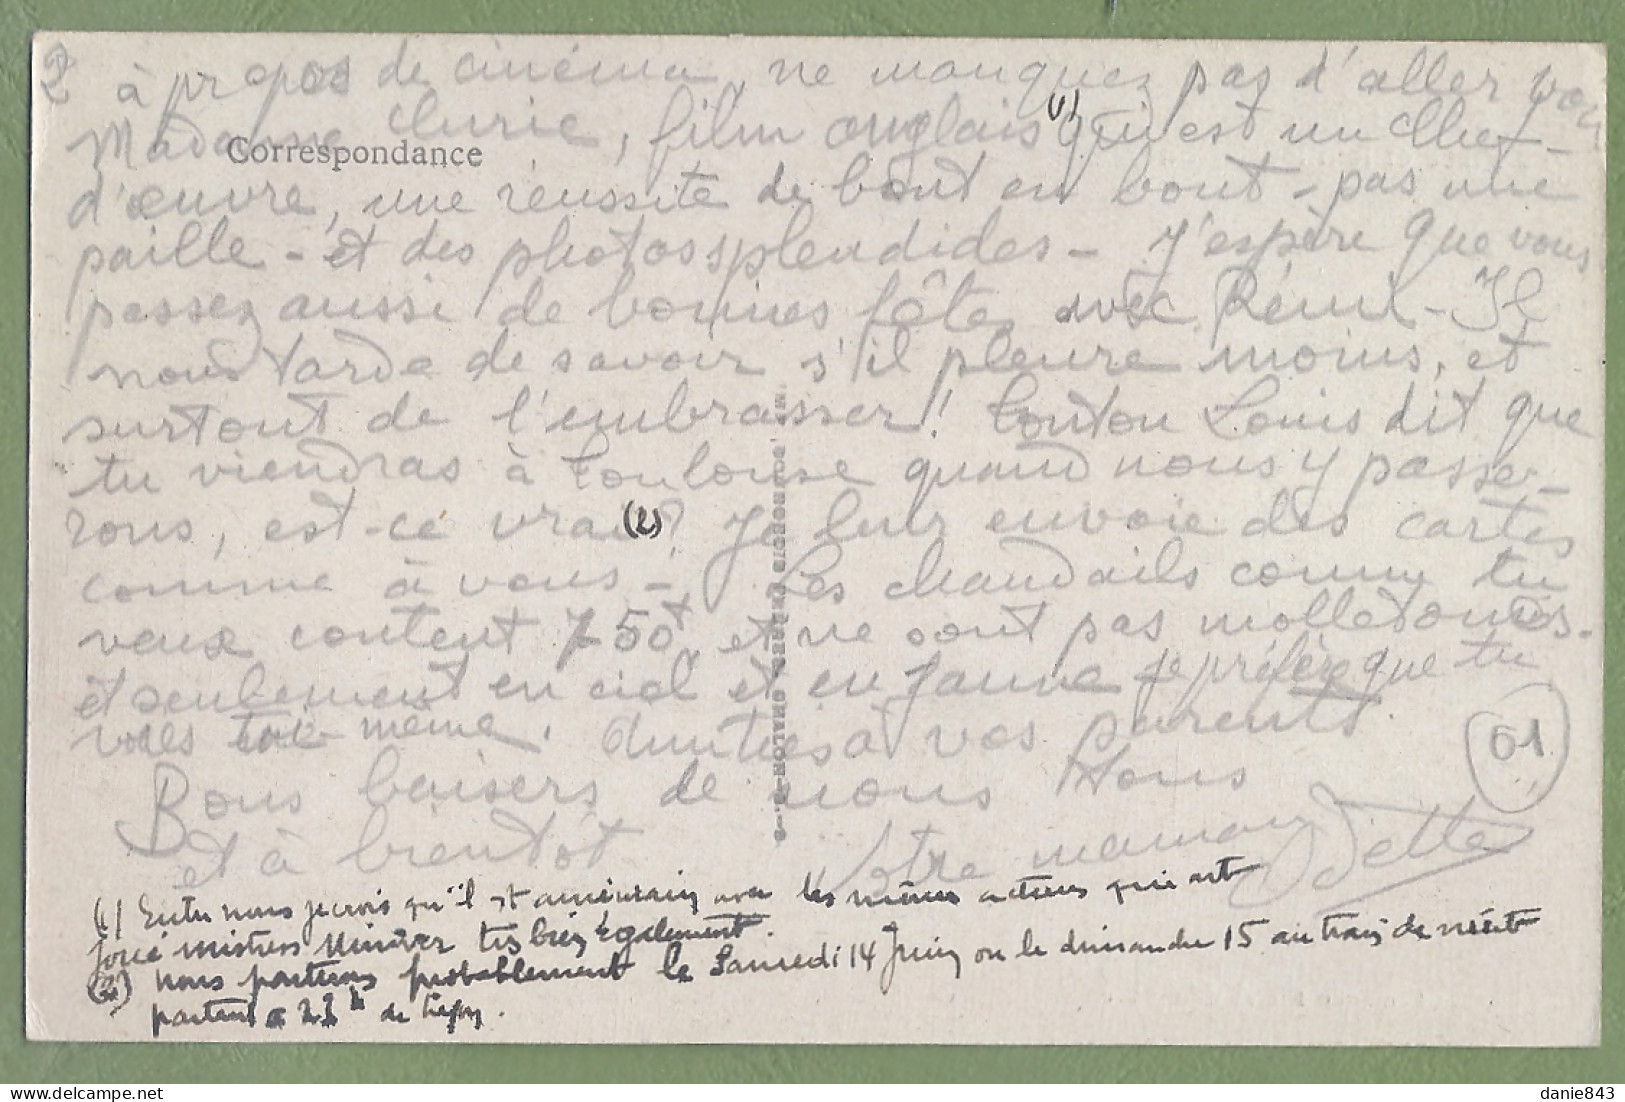 2 à propos de cinéma, ne manquez pas d'aller voir
Madame Curie, film anglais (1) qui est un chef-
Correspondance
d'œuvre, une réussite de bout en bout - pas une
paille - et des photos splendides - J'espère que vous
passez aussi de bonnes fêtes avec Rémi - Il
nous tarde de savoir s'il pleure moins, et
surtout de l'embrasser! Tonton Louis dit que
tu viendras à Toulouse quand nous y passe-
rons, est-ce vrai (2)? Je leur envoie des cartes
comme à vous - Les chandails comme tu
veux content 750f et ne sont pas molletonnés.
et seulement en ciel et en jaune je préfère que tu
voies toi même. Amitiés à vos parents
Bons baisers de nous tous
et à bientôt
Votre maman
Odette
01
(1) Entre nous je crois qu'il est américain avec les mêmes acteurs qui ont
joué mistress Miniver très bien également.
(2) nous partirons probablement le Samedi 14 Juin ou le dimanche 15 au train de
partant à de
danie843